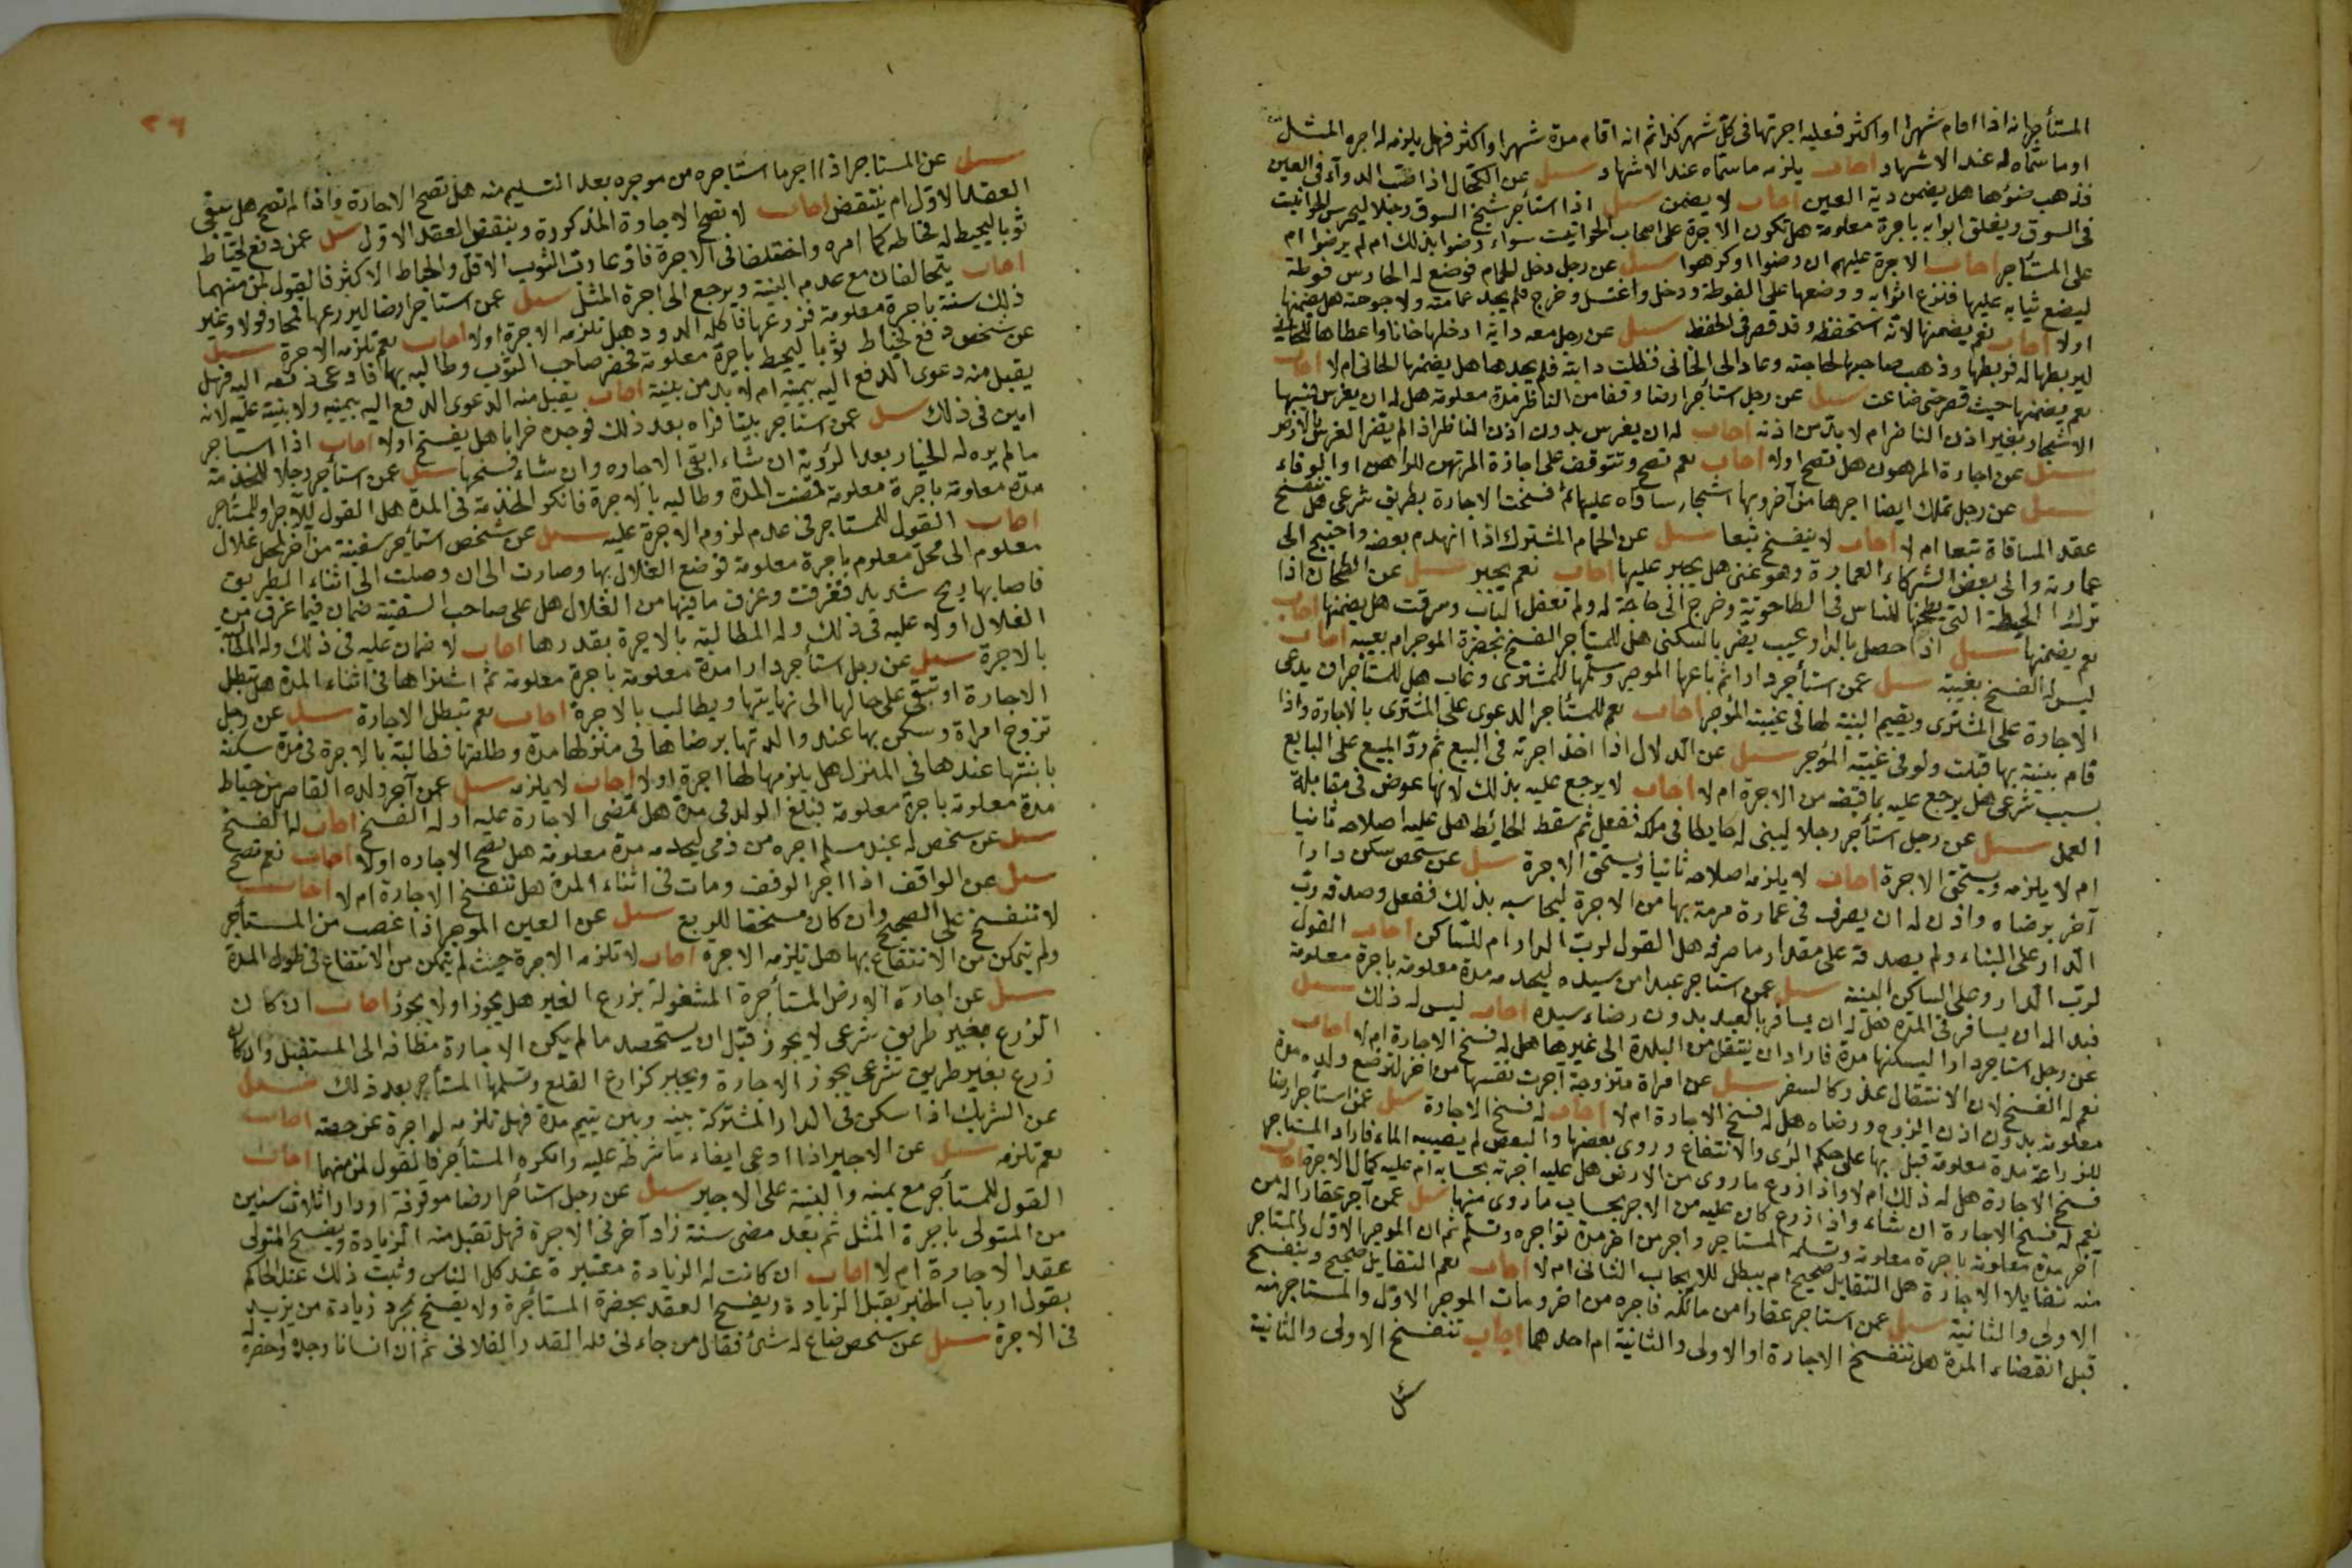 المستأجر انه اذا اقام شهرا او اكثر فعليه اجرتها فى كل شهر كذا ثم انه اقام مدة شهرا او اكثر فهل يلزمه اجرة المثل
او ما سماه له عند الاشهاد اجاب يلزمه ما سماه عند الاشهاد سئل عن الكحال اذا صب الدوآء فى العين
فذهب ضؤها هل يضمن دية العين اجاب لا يضمن سئل اذا استأجر شيخ السوق رجلا ليحرس الحوانيت
فى السوق ويغلق ابوابه باجرة معلومة هل تكون الاجرة على اصحاب الحوانيت سواء رضوا بذلك ام لم يرضوا ام
على المستأجر اجاب الاجرة عليهم ان رضوا او كرهوا سئل عن رجل دخل الحمام فوضع له الحارس فوطة
ليضع ثيابه عليها فنزع اثوابه ووضعها على الفوطة ودخل واغتسل وخرج فلم يجد عمامته ولا جوخته هل يضمنها
اولا اجاب نعم يضمنها لانه استحفظه وقد قصر فى الحفظ سئل عن رجل معه دابة ادخلها خانا واعطاها للخانى
ليربطها له فربطها وذهب صاحبها لحاجته وعاد الى الخانى فطلب دابته فلم يجدها هل يضمنها الخانى ام لا اجاب
نعم يضمنها حيث قصر حتى ضاعت سئل عن رجل استأجر ارضا وقفا من الناظر مدة معلومة هل له ان يغرس فيها
الاشجار بغير اذن الناظر ام لا بد من اذنه اجاب له ان يغرس بدون اذن الناظر اذا لم يضر الغرس بالارض
سئل عن اجارة المرهون هل تصح اولا اجاب نعم تصح وتتوقف على اجازة المرتهن للراهن او الوفاء
سئل عن رجل تملك ايضا اجرها من آخر وبها اشجار ساقاه عليها ثم فسخت الاجارة بطريق شرعى هل تنفسخ
عقد المساقاة تبعا ام لا اجاب لا ينفسخ تبعا سئل عن الحمام المشترك اذا انهدم بعضه واحتيج الى
عمارته وابى بعض الشركاء العمارة وهو غنى هل يجبر عليها اجاب نعم يجبر سئل عن الطحان اذا
ترك الحنطة التى يطحنها للناس فى الطاحونة وخرج الى حاجة له ولم تقفل الباب وسرقت هل يضمنها اجاب
نعم يضمنها سئل اذا حصل بالدار عيب يضر بالسكنى هل للمستأجر الفسخ بحضرة الموجر ام بغيبته اجاب
ليس له الفسخ بغيبته سئل عمن استأجر دارا ثم باعها الموجر وسلمها للمشترى وغاب هل للمستأجر ان يدعى
الاجارة على المشترى ويقيم البينة لها فى غيبة المؤجر اجاب نعم للمستأجر الدعوى على المشترى بالاجارة واذا
قام بينة بها قبلت ولو فى غيبة المؤجر سئل عن الدلال اذا اخذ اجرته فى البيع ثم رد المبيع على البايع
بسبب شرعى هل يرجع عليه بما قبضه من الاجرة ام لا اجاب لا يرجع عليه بذلك لانها عوض فى مقابلة
العمل سئل عن رجل استأجر رجلا ليبنى له حايطا فى ملكه ففعل ثم سقط الحائط هل عليه اصلاحه ثانيا
ام لا يلزمه ويستحق الاجرة اجاب لا يلزمه اصلاحه ثانيا ويستحق الاجرة سئل عن شخص سكن دارا
آخر برضاه واذن له ان يصرف فى عمارة مرمة بها من الاجرة ليحاسبه بذلك ففعل وصدقه رب
الدار على البناء ولم يصدقه على مقدار ما صرفه هل القول لرب الدار ام للساكن اجاب القول
لرب الدار وعلى الساكن البينة سئل عمن استاجر عبدا من سيده ليخدمه مدة معلومة باجرة معلومة
فبدا له ان يسافر فى المدة هل له ان يسافر بالعبد بدون رضاء سيده اجاب ليس له ذلك سئل
عن رجل استاجر دارا ليسكنها مدة فاراد ان ينتقل من البلدة الى غيرها هل له فسخ الاجارة ام لا اجاب
نعم له الفسخ لان الانتقال عذر كالسفر سئل عن امراة متزوجة آجرت نفسها من آخر لترضع ولده مدة
معلومة بدون اذن الزوج ورضاه هل له فسخ الاجارة ام لا اجاب له فسخ الاجارة سئل عمن استأجر ارضا
للزراعة مدة معلومة قيل بها على حكم الرى والانتفاع وروى بعضها والبعض لم يصيبه الماء فاراد المستاجر
فسخ الاجارة هل له ذلك ام لا واذا زرع ما روى من الارض هل عليه اجرته بحسابه ام عليه كمال الاجرة اجاب
نعم له فسخ الاجارة ان شاء واذا زرع كان عليه من الاجر بحساب ما روى منها سئل عمن آجر عقارا له من
آخر مدة معلومة باجرة معلومة وتسلمه المستاجر واجر من اخر مدة تواجره وتسلم ثم ان الموجر الاول والمستاجر
منه تقايلا الاجارة هل التقايل صحيح ام يبطل للايجاب الثانى ام لا اجاب نعم التقايل صحيح وينفسخ
الاولى والثانية سئل عمن استاجر عقارا من مالكه فاجره من اخر ومات الموجر الاول والمستاجر منه
قبل انقضاء المدة هل تنفسخ الاجارة او الاولى والثانية ام احدهما اجاب تنفسخ الاولى والثانية
سئل
٢٦
سئل عن المستاجر اذا اجر ما استاجره من موجره بعد التسليم منه هل تصح الاجارة واذا لم تصح هل يبقى
العقد الاول ام ينتقض اجاب لا تصح الاجارة المذكورة وينتقض العقد الاول سئل عمن دفع لخياط
ثوبا ليخيطه له فخاطه كما امره واختلفا فى الاجرة فادعا رب الثوب الاقل والخياط الاكثر فالقول لمن منهما
اجاب يتحالفان مع عدم البينة ويرجع الى اجرة المثل سئل عمن استاجر ارضا ليزرعها قمحا وفولا وغير
ذلك سنة باجرة معلومة فزرعها فاكله الدود هل تلزمه الاجرة اولا اجاب نعم تلزمه الاجرة سئل
عن شخص دفع لخياط ثوبا ليخيط باجرة معلومة فحضر صاحب الثوب وطالبه بها فادعى دفعه اليه فهل
يقبل منه دعوى الدفع اليه بيمينه ام لا بد من بينة اجاب يقبل منه الدعوى الدفع اليه بيمينه ولا بينة عليه لانه
امين فى ذلك سئل عمن استاجر بيتا فراه بعد ذلك فوجده خرابا هل يفسخ اولا اجاب اذا استاجر
ما لم يره له الخيار بعد الرؤية ان شاء ابقى الاجاره وان شاء فسخها سئل عمن استأجر رجلا للخدمة
مدة معلومة باجرة معلومة فمضت المدة وطالبه بالاجرة فانكر الخدمة فى المدة هل القول للآجر او للمستاجر
اجاب القول للمستاجر فى عدم لزوم الاجرة عليه سئل عن شخص استأجر سفينة من آخر لحمل غلال
معلوم الى محل معلوم باجرة معلومة فوضع الغلال بها وصارت الى ان وصلت الى اثناء الطريق
فاصابها ريح شديد فغرقت وغرق ما فيها من الغلال هل على صاحب السفينة ضمان فيما غرق من
الغلال اولا عليه فى ذلك وله المطالبة بالاجرة بقدرها اجاب لا ضمان عليه فى ذلك وله المطالبة
بالاجرة سئل عن رجل استأجر دارا مدة معلومة باجرة معلومة ثم اشتراها فى اثناء المدة هل تبطل
الاجارة او تبقى على حالها الى نهايتها ويطالب بالاجرة اجاب نعم تبطل الاجارة سئل عن رجل
تزوج امراة وسكن بها عند والدتها برضاها فى منزلها مدة وطلقها فطالبته بالاجرة فى مدة سكنه
بابنتها عندها فى المنزل هل يلزمها لها اجرة اولا اجاب لا يلزمه سئل عمن آجر ولده القاصر من خياط
مدة معلومة باجرة معلومة فبلغ الولد فى مدة هل تمضى الاجارة عليه او له الفسخ اجاب له الفسخ
سئل عن شخص له عبد مسلم اجره من ذمى ليخدمه مدة معلومة هل تصح الاجاره اولا اجاب نعم تصح
سئل عن الواقف اذا اجر الوقف ومات فى اثناء المدة هل تنفسخ الاجارة ام لا اجاب
لا تنفسخ على الصحيح وان كان مستحقا للريع سئل عن العين الموجر اذا غصب من المستأجر
ولم يتمكن من الانتفاع بها هل تلزمه الاجرة اجاب لا تلزمه الاجرة حيث لم يتمكن من الانتفاع فى طول المدة
سئل عن اجارة الارض المستأجرة المشغولة بزرع الغير هل يجوز اولا يجوز اجاب ان كان
الزرع بغير طريق شرعى لا يجوز قبل ان يستحصد ما لم يكن الاجارة مضافه الى المستقبل وان كان
زرع بغير طريق شرعى يجوز الاجارة ويجبر كزارع القلع وتسلمها المستأجر بعد ذلك سئل
عن الشريك اذا سكن فى الدار المشتركة بينه وبين يتيم مدة فهل تلزمه له اجرة عن حصته اجاب
نعم تلزمه سئل عن الاجير اذا ادعى ايفاء ما شرطه عليه وانكره المستأجر فالقول لمن منهما اجاب
القول للمستأجر مع يمينه والبينة على الاجير سئل عن رجل استأجر ارضا موقوفة او دارا ثلاث سنين
من المتولى باجرة المثل ثم بعد مضى سنة زاد آخر فى الاجرة فهل تقبل منه الزيادة ويفسخ المتولى
عقد الاجارة ام لا اجاب ان كانت له الزيادة معتبرة عند كل الناس وثبت ذلك عند الحاكم
بقول ارباب الخبر يقبل الزيادة ويفسخ العقد بحضرة المستأجرة ولا يفسخ بمجرد زيادة من يزيد
فى الاجرة سئل عن شخص ضاع له شئ فقال من جاء لى فله القدر الفلانى ثم ان انسانا وجده واحضره